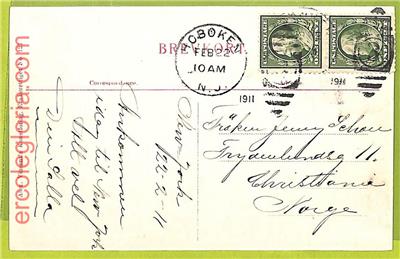 BREFKORT.
HOBOKEN
FEB 22
10 AM
N.J.
1911
1911
Correspondance.
New York
22-2-11
Ankommen
idag til New York
Alt vel
Din Calla
Frøken Jenny Schou
Frydenlundsg 11.
Christiania
Norge
ercolegloria.com